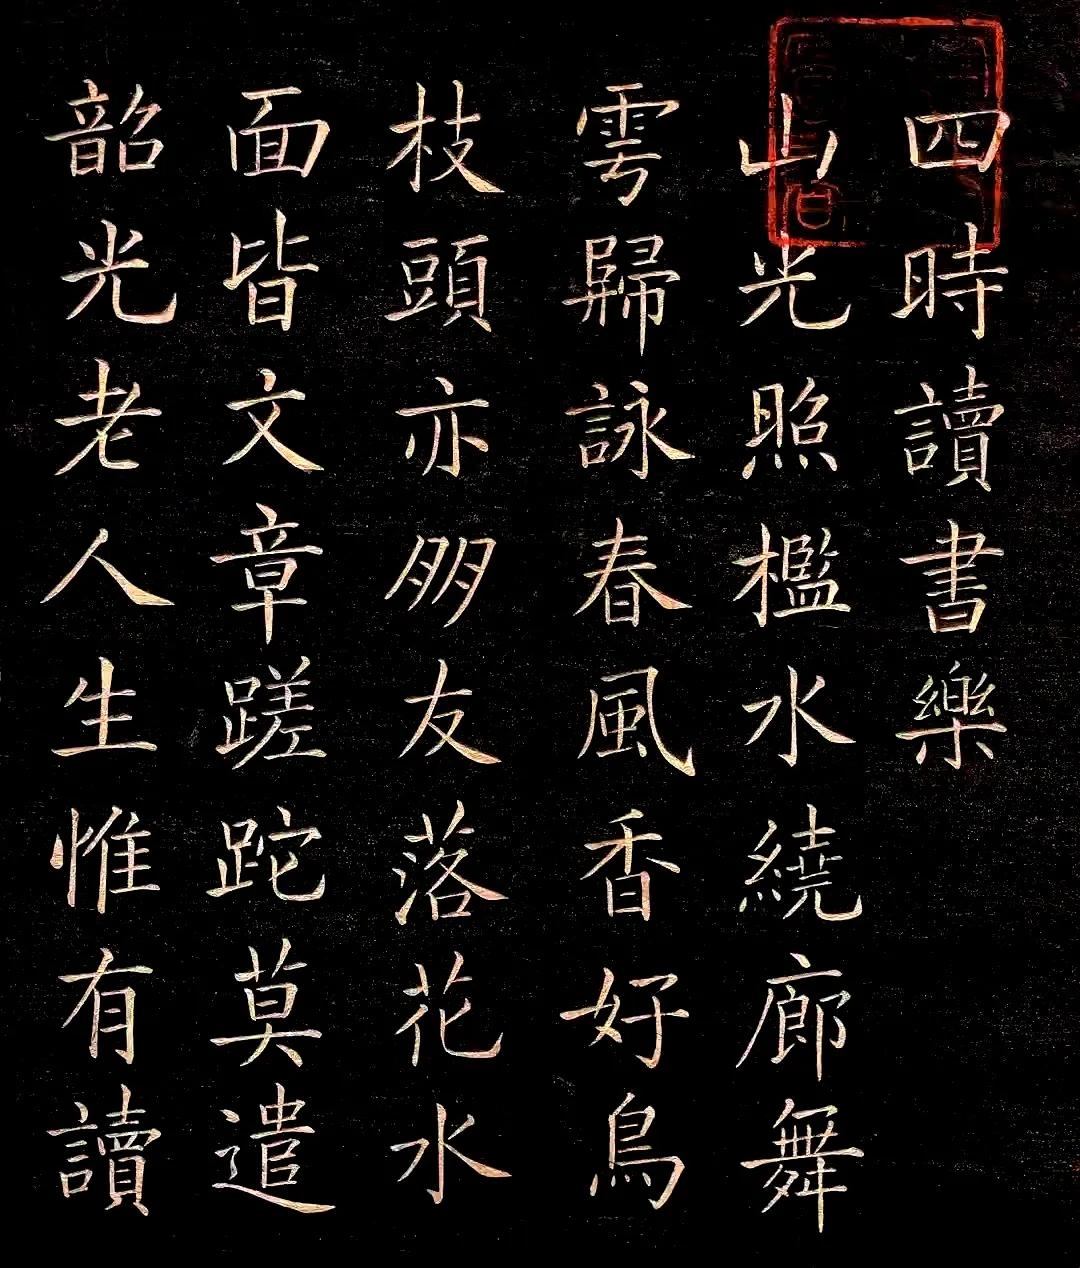 四時讀書樂
山光照檻水繞廊舞
雩歸詠春風香好鳥
枝頭亦朋友落花水
面皆文章蹉跎莫遣
韶光老人生惟有讀